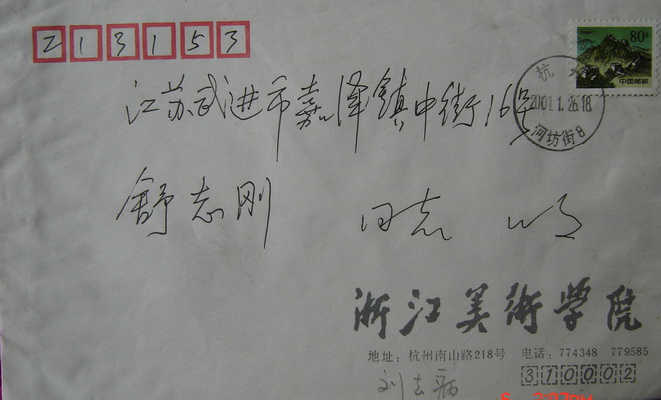 213153
80分
中国邮政
杭
2001.1.26.18
河坊街
江苏武进市嘉泽镇中街16号
舒志刚 同志 收
浙江美術学院
地址：杭州南山路218号 电话：774348 779585
310002